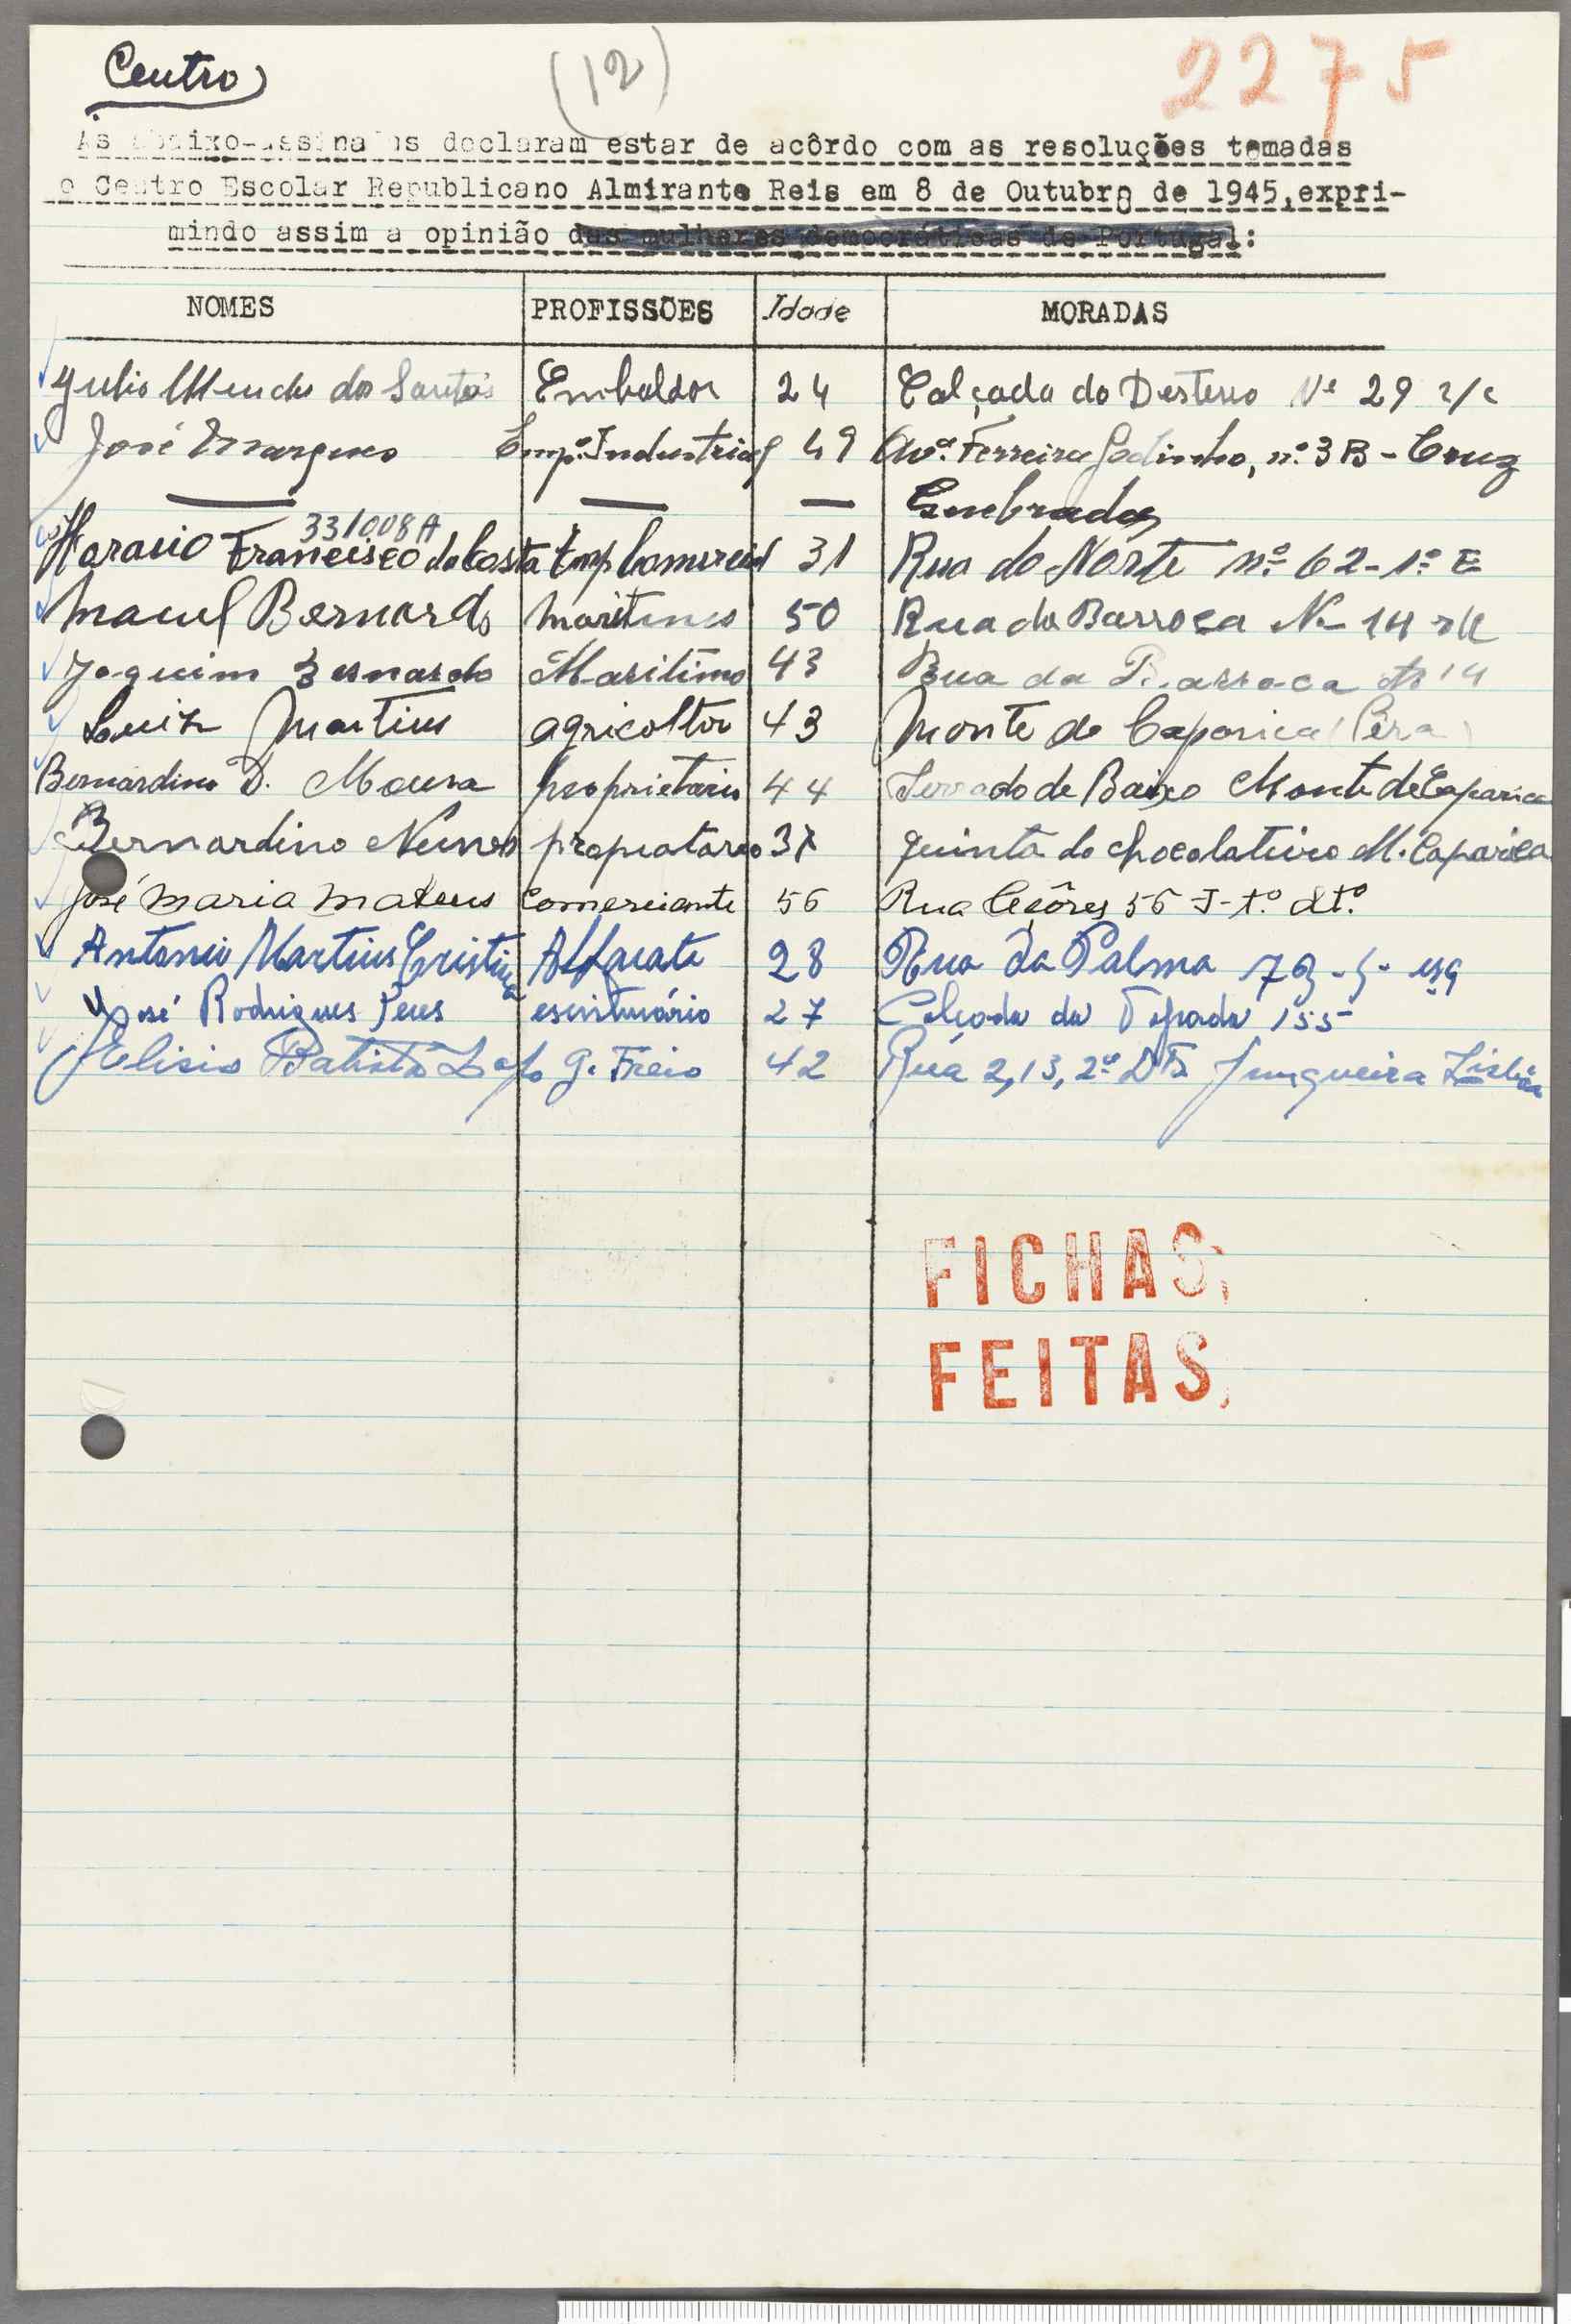 Centro
(12)
2275
As abaixo-assinadas declaram estar de acôrdo com as resoluções tomadas
o Centro Escolar Republicano Almirante Reis em 8 de Outubro de 1945, expri-
mindo assim a opinião das mulheres democráticas de Portugal:
NOMES PROFISSÕES Idade MORADAS
Julio Mendes dos Santos Embalador 24 Calçada do Desterro Nº 29 r/c
José Marques Empº. Industrial 49 Avª. Ferreira Godinho, nº. 3B - Cruz
— — — Quebrada
331008A
Horacio Francisco da Costa Emp Comercial 31 Rua do Norte nº 62-1º E
Manuel Bernardo maritimo 50 Rua da Barroca Nº 14
Joaquim Bernardo Maritimo 43 Rua da Barroca Nº 14
Luiz Martins agricoltor 43 Monte de Caparica (Pêra)
Bernardino D. Moura proprietario 44 Serrado de Baixo Monte de Caparica
Bernardino Nunes propeatareo 37 quinta do chocolateiro M. Caparica
José Maria Mateus Comerciante 56 Rua Açôres 56 dtº.
Antonio Martins Cristina Alfaiate 28 Rua da Palma esq
José Rodrigues escriturário 27 Calçada da Tapada 155
Elisio Batista G. Freio 42 Rua 2, 13, 2º DTº Junqueira Lisboa
FICHAS
FEITAS